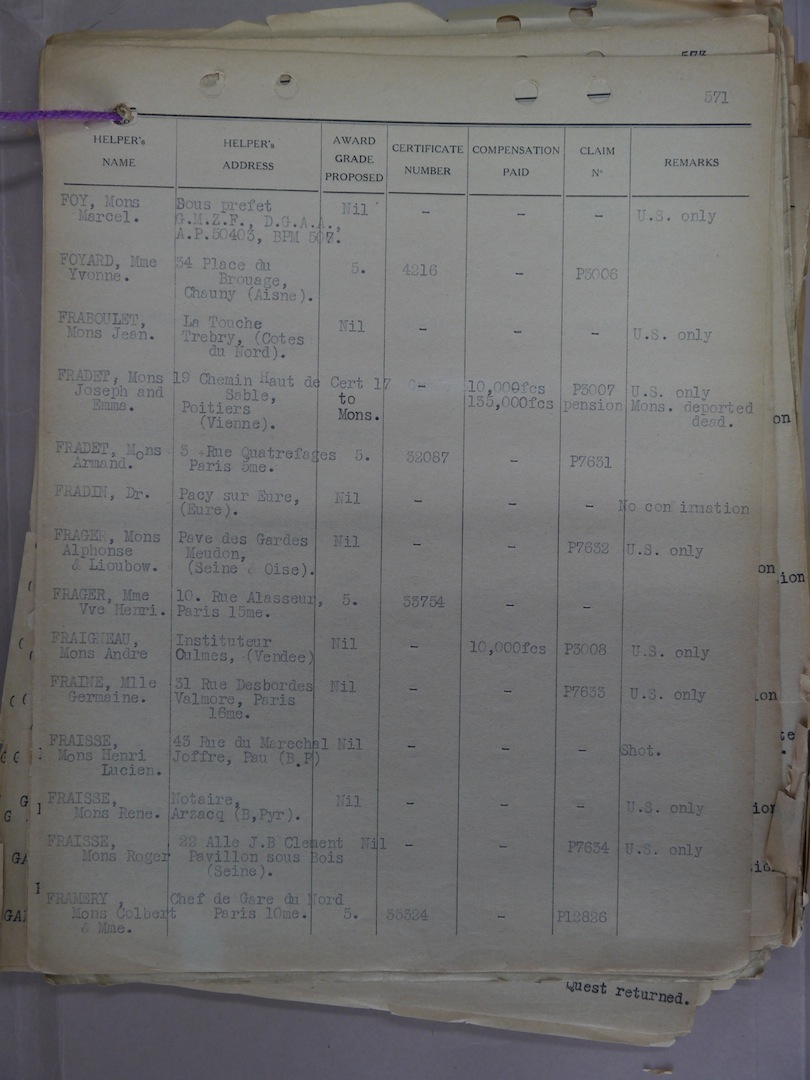 571
HELPER's NAME | HELPER's ADDRESS | AWARD GRADE PROPOSED | CERTIFICATE NUMBER | COMPENSATION PAID | CLAIM N° | REMARKS
FOY, Mons | Sous prefet | Nil | - | - | - | U.S. only
Marcel. | G.M.Z.F., D.G.A.A.,
A.P.50403, BPM 507.
FOYARD, Mme | 34 Place du | 5. | 4216 | - | P3006
Yvonne. | Brouage,
Chauny (Aisne).
FRABOULET, | La Touche | Nil | - | - | - | U.S. only
Mons Jean. | Trebry, (Cotes
du Nord).
FRADET, Mons | 19 Chemin Haut de | Cert 17 | - | 10,000fcs | P3007 | U.S. only
Joseph and | Sable, | to | 135,000fcs | pension | Mons. deported
Emma. | Poitiers | Mons. | dead.
(Vienne).
FRADET, Mons | 3 Rue Quatrefages | 5. | 32087 | - | P7631
Armand. | Paris 5me.
FRADIN, Dr. | Pacy sur Eure, | Nil | - | - | - | No con irmation
(Eure).
FRAGER, Mons | Pave des Gardes | Nil | - | - | P7632 | U.S. only
Alphonse | Meudon,
& Lioubow. | (Seine & Oise).
FRAGER, Mme | 10. Rue Alasseur, | 5. | 33754 | - | -
Vve Henri. | Paris 15me.
FRAIGNEAU, | Instituteur | Nil | - | 10,000fcs | P3008 | U.S. only
Mons Andre | Oulmes, (Vendee)
FRAINE, Mlle | 31 Rue Desbordes | Nil | - | - | P7633 | U.S. only
Germaine. | Valmore, Paris
16me.
FRAISSE, | 43 Rue du Marechal | Nil | - | - | - | Shot.
Mons Henri | Joffre, Pau (B.P)
Lucien.
FRAISSE, | Notaire, | Nil | - | - | - | U.S. only
Mons Rene. | Arzacq (B,Pyr).
FRAISSE, | 22 Alle J.B Clement | Nil | - | - | P7634 | U.S. only
Mons Roger | Pavillon sous Bois
(Seine).
FRAMERY , | Chef de Gare du Nord
Mons Colbert | Paris 10me. | 5. | 33324 | - | P12826
& Mme.
Quest returned.